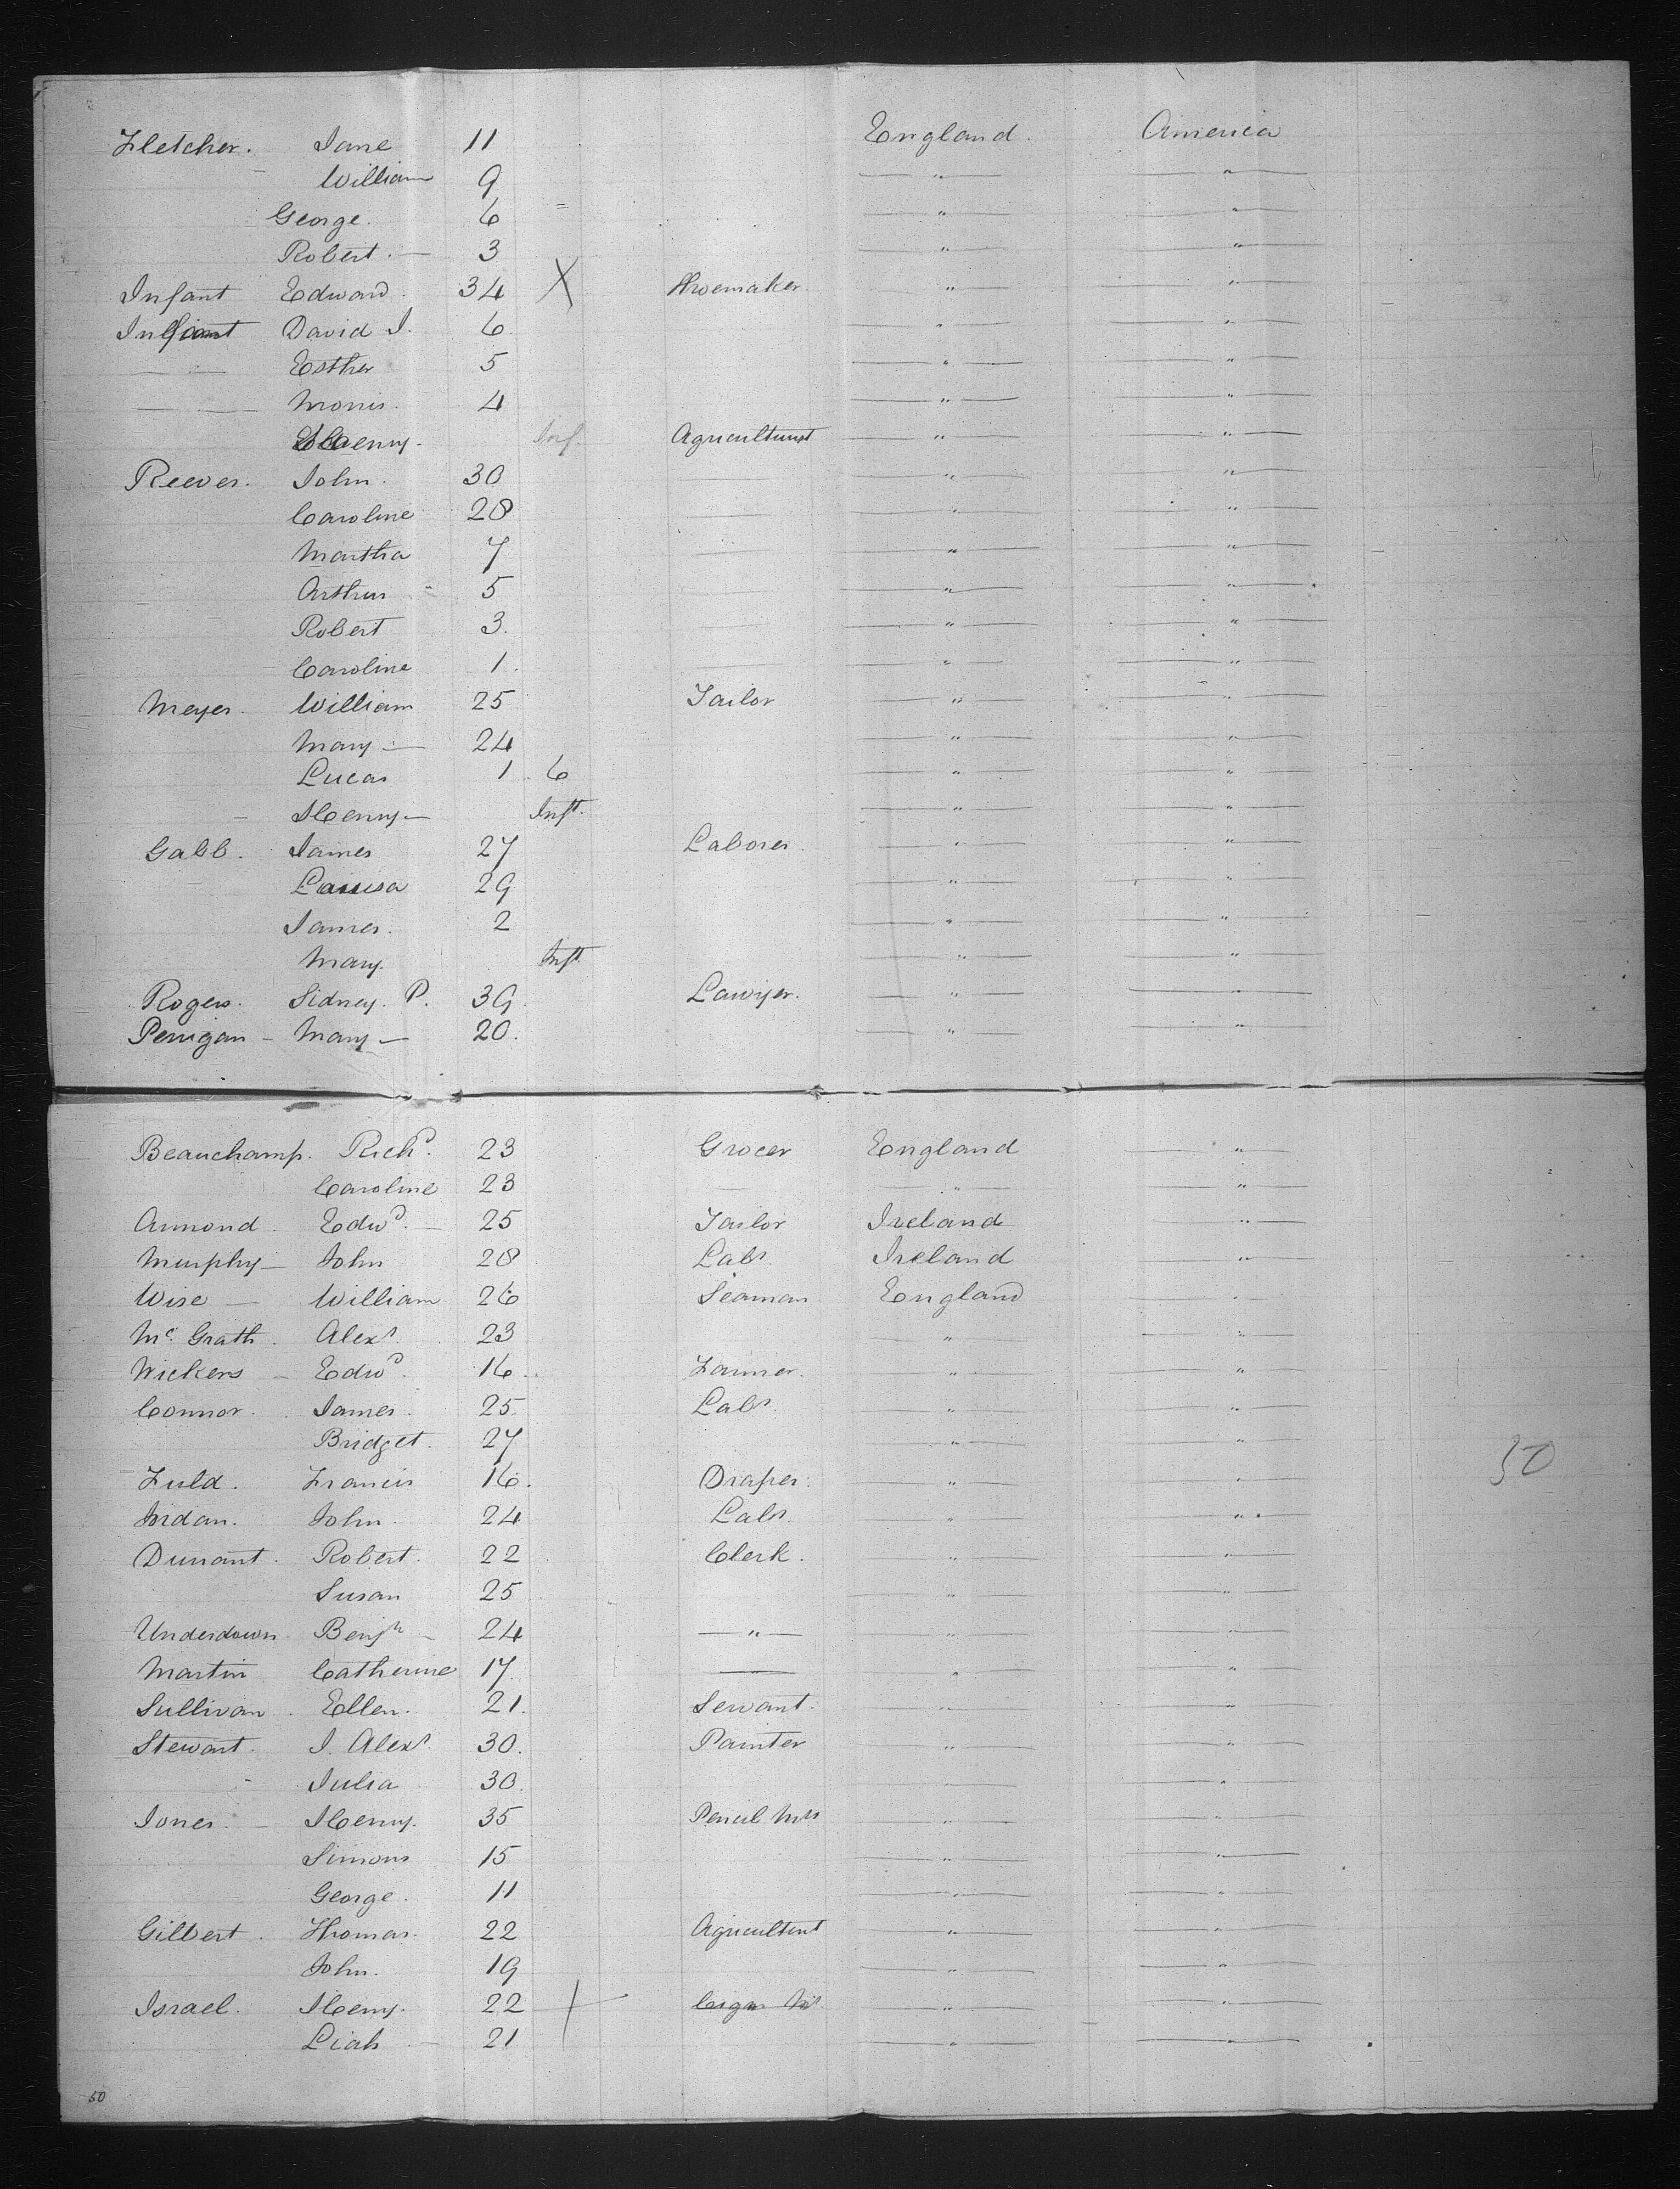 Fletcher. Jane 11 England. America
William 9 — " — — " —
George. 6 — " — — " —
Robert. — 3 — " — — " —
Infant Edward. 34 X Shoemaker. — " — — " —
Infant David J. 6 — " — — " —
— Esther 5 — " — — " —
— Morris. 4 — " — — " —
Henry. Inf. Agriculturist — " — — " —
Reeves. John. 30 — — " — — " —
Caroline 28 — — " — — " —
Martha 7 — — " — — " —
Arthur 5 — — " — — " —
Robert 3. — — " — — " —
Caroline 1. — — " — — " —
Meyer. William 25 Tailor — " — — " —
Mary — 24 — " — — " —
Lucas 1 6 — " — — " —
Henry — Inft. — " — — " —
Gabb. James 27 Laborer. — " — — " —
Louisa 29 — " — — " —
James. 2 — " — — " —
Mary. Inft. — " — — " —
Rogers. Sidney. P. 39. Lawyer. — " — — " —
Perrigan — Mary — 20. — " — — " —
Beauchamp. Richd. 23 Grocer England — " —
Caroline 23 — — " — — " —
Armond. Edwd. — 25 Tailor Ireland — " —
Murphy — John 28 Labr. Ireland — " —
Wise — William 26 Seaman England — " —
Mc Grath. Alexr. 23 — " — — " —
Wickens — Edwd. 16. Farmer. — " — — " —
Connor. James. 25. Labr. — " — — " —
Bridget. 27 — " — — " —
Fuld. Francis 16. Draper. — " — — " —
Jordan. John. 24 Labr. — " — — " —
Durrant. Robert. 22 Clerk. — " — — " —
Susan 25 — " — — " —
Underdown. Benjn — 24 — " — — " — — " —
Martin Catherine 17. — — " — — " —
Sullivan. Ellen. 21. Servant. — " — — " —
Stewart. J. Alexr. 30. Painter — " — — " —
Julia 30. — " — — " —
Jones. — Henry. 35 Pencil Mkr — " — — " —
Simons 15 — " — — " —
George. 11 — " — — " —
Gilbert. Thomas. 22 Agricultrist — " — — " —
John. 19 — " — — " —
Israel. Henry. 22 + Cigar Mkr — " — — " —
Liah — 21 — " — — " —
50
50